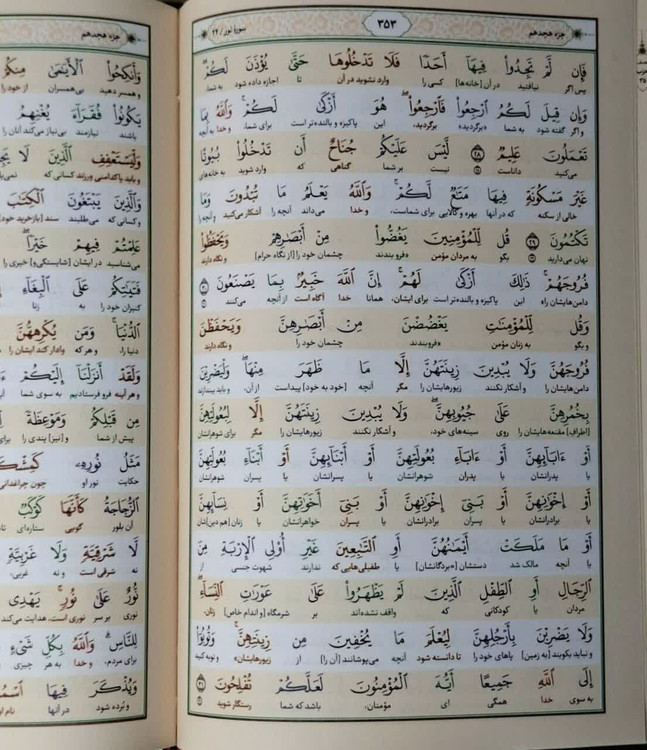 جزء هجدهم
۳۵۳
سورهٔ نور / ۲۴
فَإِن لَّمْ تَجِدُوا فِيهَا أَحَدًا فَلَا تَدْخُلُوهَا حَتَّىٰ يُؤْذَنَ لَكُمْ
پس اگر نیافتید در آن [خانه‌ها] کسی را وارد نشوید در آن تا اجازه داده شود به شما
وَإِن قِيلَ لَكُمُ ارْجِعُوا فَارْجِعُوا هُوَ أَزْكَىٰ لَكُمْ وَاللَّهُ بِمَا
و اگر گفته شود به شما «برگردید» برگردید، این پاکیزه و بالنده‌تر است برای شما، و خدا به آنچه
تَعْمَلُونَ عَلِيمٌ ۲۸ لَيْسَ عَلَيْكُمْ جُنَاحٌ أَن تَدْخُلُوا بُيُوتًا
می‌کنید داناست نیست بر شما گناهی که وارد شوید به خانه‌های
غَيْرَ مَسْكُونَةٍ فِيهَا مَتَاعٌ لَّكُمْ وَاللَّهُ يَعْلَمُ مَا تُبْدُونَ وَمَا
خالی از سکنه که در آنها بهره و کالایی برای شماست، و خدا می‌داند آنچه را آشکار می‌کنید و آنچه را
تَكْتُمُونَ ۲۹ قُل لِّلْمُؤْمِنِينَ يَغُضُّوا مِنْ أَبْصَارِهِمْ وَيَحْفَظُوا
نهان می‌دارید بگو به مردان مؤمن فروبندند چشمان خود را [از نگاه حرام] و نگاه دارند
فُرُوجَهُمْ ذَٰلِكَ أَزْكَىٰ لَهُمْ إِنَّ اللَّهَ خَبِيرٌ بِمَا يَصْنَعُونَ ۳۰
دامن‌هایشان را، این پاکیزه و بالنده‌تر است برای ایشان، همانا خدا آگاه است از آنچه می‌کنند
وَقُل لِّلْمُؤْمِنَاتِ يَغْضُضْنَ مِنْ أَبْصَارِهِنَّ وَيَحْفَظْنَ
و بگو به زنان مؤمن فروبندند چشمان خود را و نگاه دارند
فُرُوجَهُنَّ وَلَا يُبْدِينَ زِينَتَهُنَّ إِلَّا مَا ظَهَرَ مِنْهَا وَلْيَضْرِبْنَ
دامن‌هایشان را و آشکار نکنند زیورهایشان را مگر آنچه [خود به خود] پیداست از آن، و باید بیندازند
بِخُمُرِهِنَّ عَلَىٰ جُيُوبِهِنَّ وَلَا يُبْدِينَ زِينَتَهُنَّ إِلَّا لِبُعُولَتِهِنَّ
[اطراف] مقنعه‌هایشان را روی سینه‌های خود، و آشکار نکنند زیورهایشان را مگر برای شوهرانشان
أَوْ ءَابَآئِهِنَّ أَوْ ءَابَآءِ بُعُولَتِهِنَّ أَوْ أَبْنَآئِهِنَّ أَوْ أَبْنَآءِ بُعُولَتِهِنَّ
یا پدرانشان یا پدران شوهرانشان یا پسرانشان یا پسران شوهرانشان
أَوْ إِخْوَانِهِنَّ أَوْ بَنِي إِخْوَانِهِنَّ أَوْ بَنِي أَخَوَاتِهِنَّ أَوْ نِسَآئِهِنَّ
یا برادرانشان یا پسران برادرانشان یا پسران خواهرانشان یا زنان [هم دین]شان
أَوْ مَا مَلَكَتْ أَيْمَانُهُنَّ أَوِ التَّابِعِينَ غَيْرِ أُولِي الْإِرْبَةِ مِنَ
یا آنچه مالک شد دستشان [=بردگانشان] یا طفیلی‌هایی که ندارند شهوت جنسی از
الرِّجَالِ أَوِ الطِّفْلِ الَّذِينَ لَمْ يَظْهَرُوا عَلَىٰ عَوْرَاتِ النِّسَآءِ
مردان یا کودکانی که واقف نشده‌اند بر شرمگاه [و اندام خاص] زنان،
وَلَا يَضْرِبْنَ بِأَرْجُلِهِنَّ لِيُعْلَمَ مَا يُخْفِينَ مِن زِينَتِهِنَّ وَتُوبُوا
و نباید بکوبند [به زمین] پاهای خود را تا دانسته شود آنچه می‌پوشانند [آن را] از زیورهایشان، و توبه کنید
إِلَى اللَّهِ جَمِيعًا أَيُّهَ الْمُؤْمِنُونَ لَعَلَّكُمْ تُفْلِحُونَ ۳۱
به سوی خدا همگی ای مؤمنان، باشد که شما رستگار شوید
جزء هجدهم
وَأَنكِحُوا الْأَيَامَىٰ مِنكُمْ
و همسر دهید بی‌همسران از خود را
يَكُونُوا فُقَرَآءَ يُغْنِهِمُ
باشند نیازمند بی‌نیاز می‌کند آنان را
وَلْيَسْتَعْفِفِ الَّذِينَ لَا
و باید پاکدامنی ورزند کسانی که
وَالَّذِينَ يَبْتَغُونَ الْكِتَابَ
و کسانی که می‌طلبند سند [بازخرید خود]
عَلِمْتُمْ فِيهِمْ خَيْرًا
می‌شناسید در ایشان [شایستگی و] خیری را
فَتَيَاتِكُمْ عَلَى الْبِغَآءِ
کنیزان خود را به زنا
الدُّنْيَا وَمَن يُكْرِههُّنَّ
دنیا را، و هر که وادار کند ایشان را
وَلَقَدْ أَنزَلْنَآ إِلَيْكُمْ
و هر آینه فرو فرستادیم به سوی شما
مِن قَبْلِكُمْ وَمَوْعِظَةً
پیش از شما و [نیز] پندی را
مَثَلُ نُورِهِ كَمِشْكَ
حکایت نور او چون چراغدانی
الزُّجَاجَةُ كَأَنَّهَا كَوْكَبٌ
آن بلور گویی ستاره‌ای
لَّا شَرْقِيَّةٍ وَلَا غَرْبِيَّةٍ
نه شرقی است و نه غربی،
نُّورٌ عَلَىٰ نُورٍ يَهْدِي
نوری بر سر نوری است، هدایت می‌کند
لِلنَّاسِ وَاللَّهُ بِكُلِّ شَيْءٍ
برای مردم، و خدا به هر چیزی
وَيُذْكَرَ فِيهَا
و بُرده شود در آنها